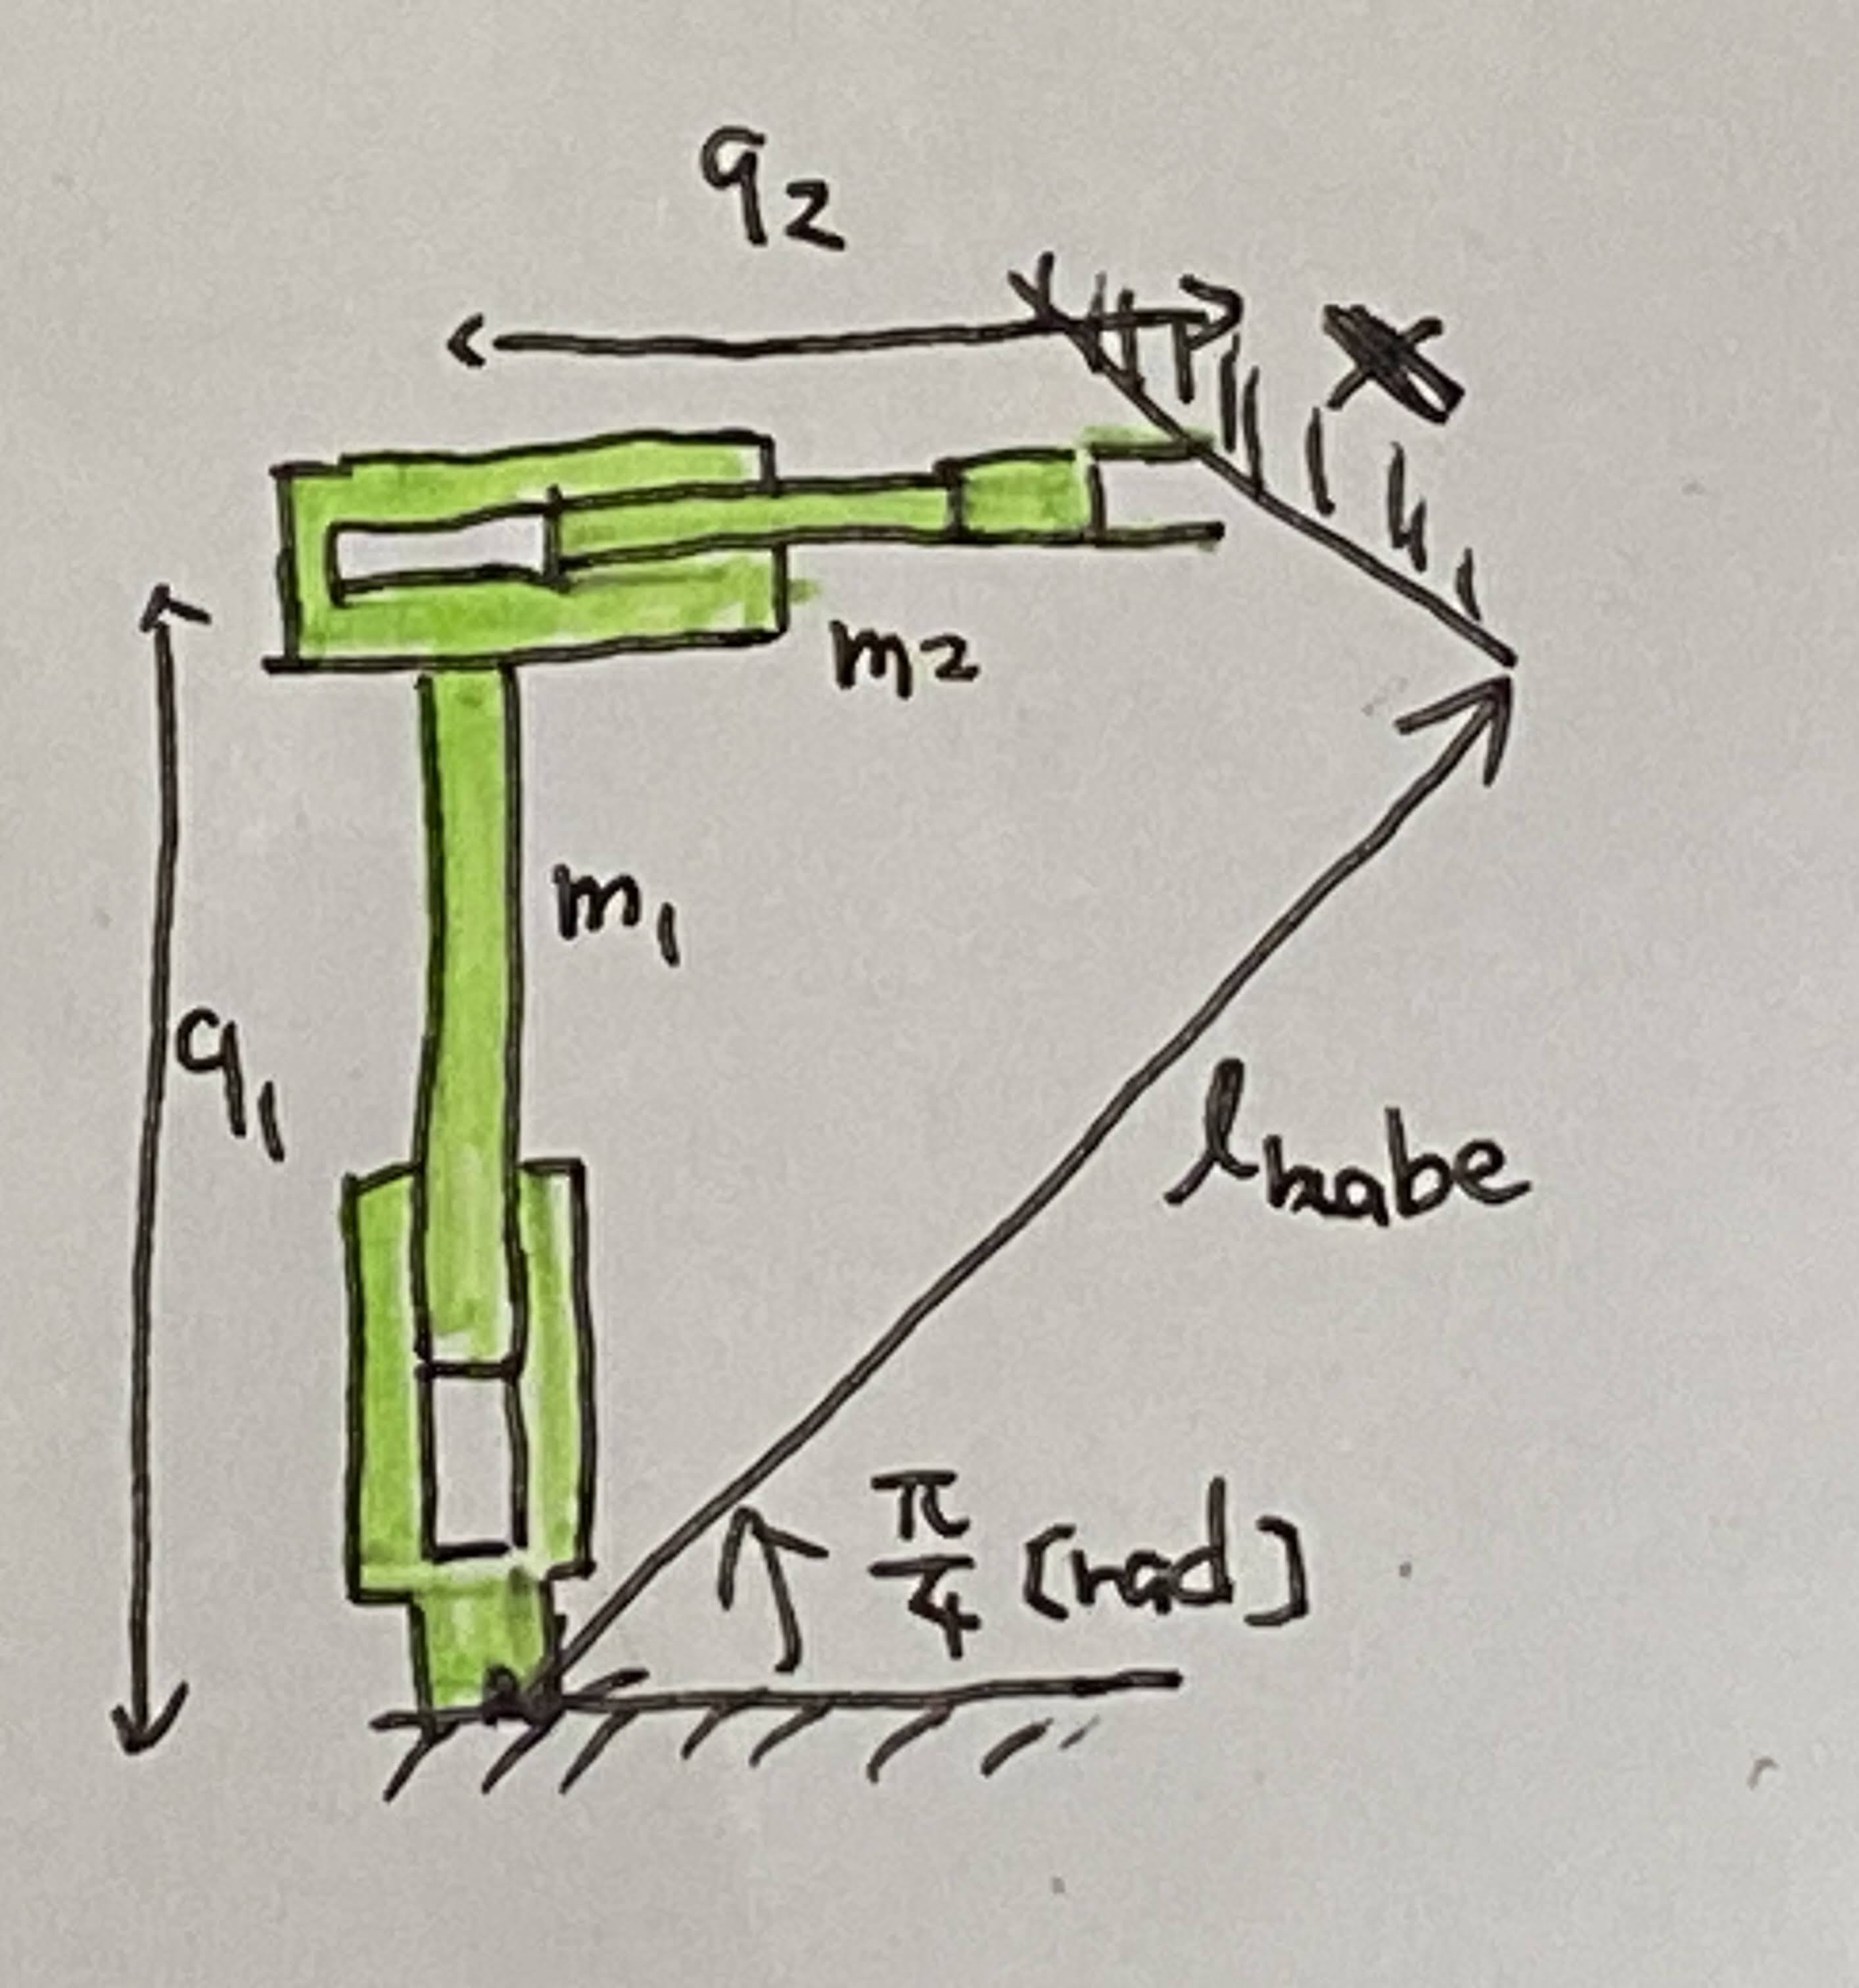 q2
m2
m1
q1
lkabe
π/4 [rad]